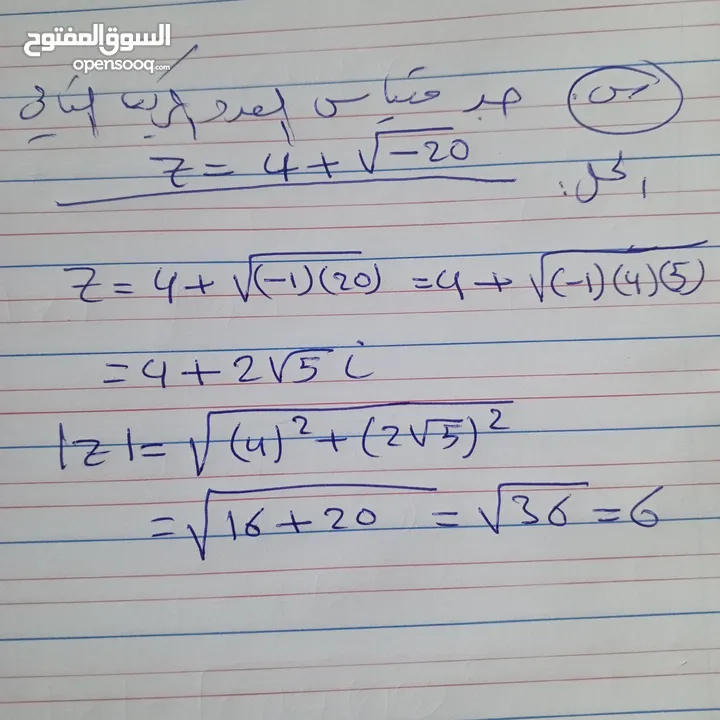 السوق المفتوح
opensooq.com
س. جد مقياس العدد المركب التالي
Z = 4 + √-20
الحل:
Z = 4 + √(-1)(20) = 4 + √(-1)(4)(5)
= 4 + 2√5 i
|z| = √(4)² + (2√5)²
= √16 + 20 = √36 = 6